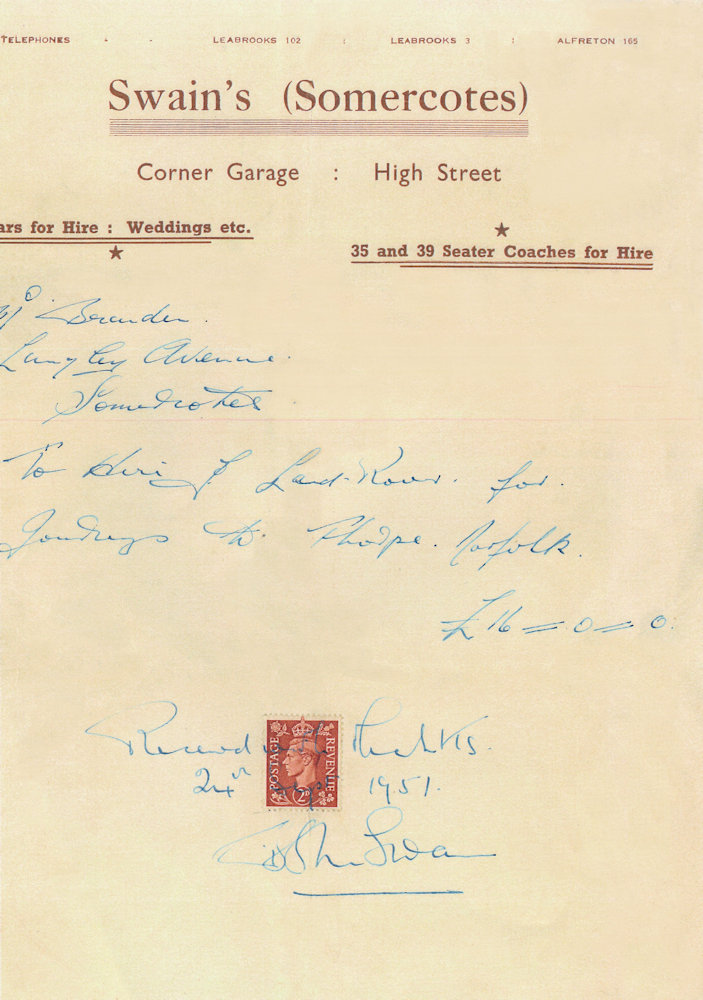 TELEPHONES - - LEABROOKS 102 : LEABROOKS 3 : ALFRETON 165
Swain's (Somercotes)
Corner Garage : High Street
ars for Hire : Weddings etc.
35 and 39 Seater Coaches for Hire
Branden.
Langley Avenue.
Somercotes
To Hire of Land-Rover. for.
Journeys to. Thorpe. Norfolk.
£16=0=0.
Received with thanks.
24th 1951.
POSTAGE REVENUE
2D
Swain